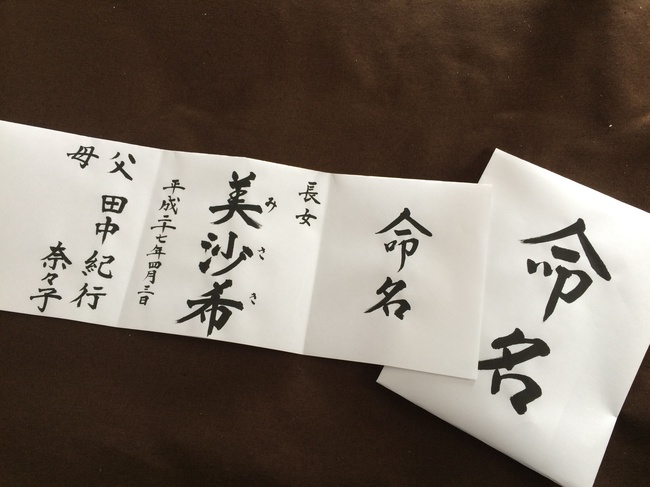 命名
命名
長女
美沙希
みさき
平成二十七年四月三日
父 田中紀行
母 奈々子